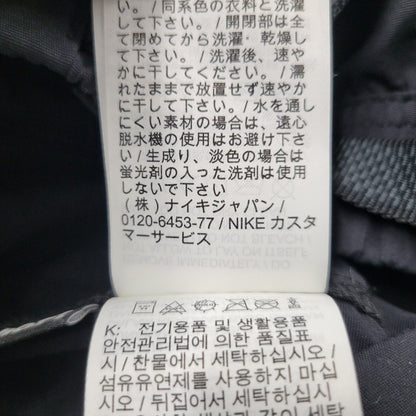 い。/ 同系色の衣料と洗濯
して下さい。/ 開閉部は全
て閉めてから洗濯・乾燥し
て下さい。/ 洗濯後、速や
かに干してください。/ 濡
れたままで放置せず速やか
に干して下さい。/ 水を通し
にくい素材の場合は、遠心
脱水機の使用はお避け下さ
い / 生成り、淡色の場合は
蛍光剤の入った洗剤は使用
しないで下さい
(株) ナイキジャパン /
0120-6453-77 / NIKE カスタ
マーサービス
K: 전기용품 및 생활용품
안전관리법에 의한 품질표
시 / 찬물에서 세탁하십시오 /
섬유유연제를 사용하지 마십
시오 / 뒤집어서 세탁하십